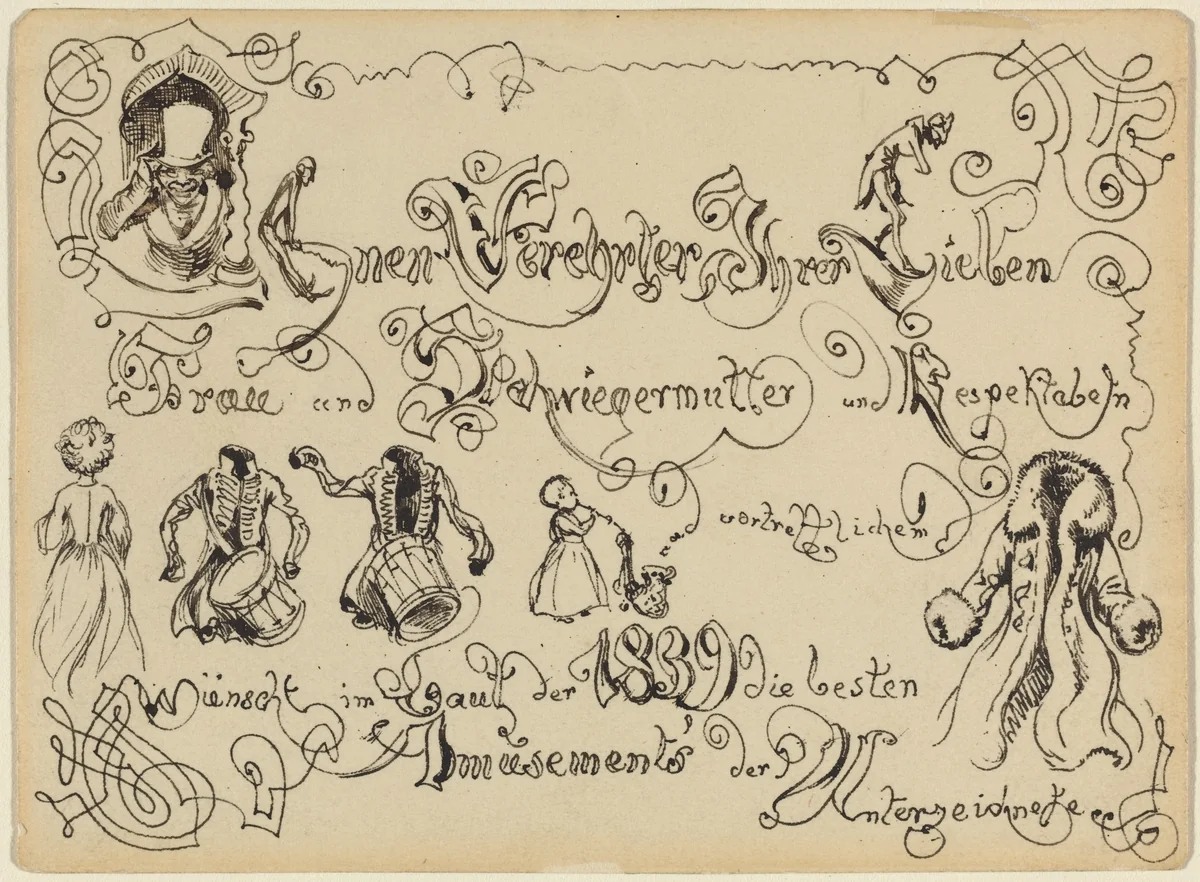 Ihnen Verehrter, Ihrer Lieben
Frau und Schwiegermutter und Respektabeln
vortrefflichem
wünscht im Lauf der 1839 die besten
Amüsements der Unterzeichnete